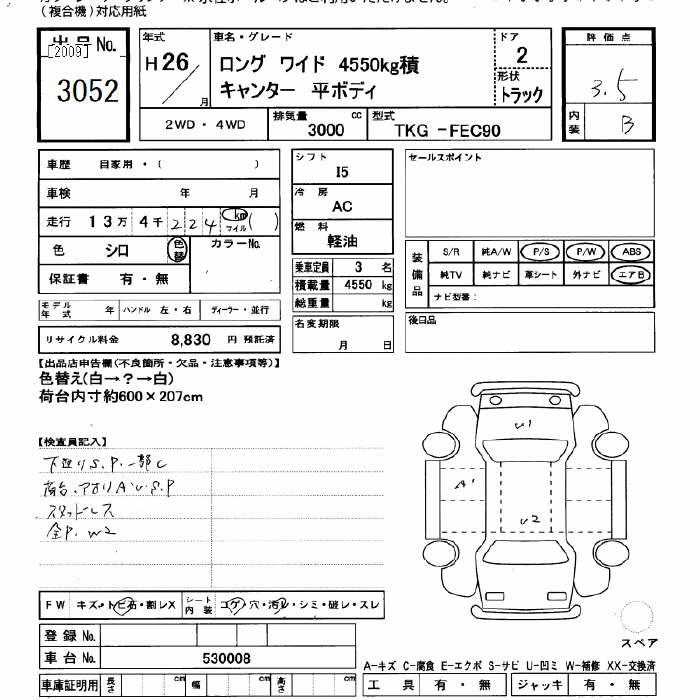 (複合機)対応用紙
出品No. [2009]
3052
年式 H26/ 月
車名・グレード
ロング ワイド 4550kg積
キャンター 平ボディ
ドア 2
形状 トラック
評価点 3.5
内装 B
2WD・4WD
排気量 3000 cc
型式 TKG -FEC90
車歴 自家用・( )
車検 年 月
走行 13万 4千 2 2 4 km マイル ( )
色 シロ 色替 カラーNo.
保証書 有・無
シフト I5
冷房 AC
燃料 軽油
乗車定員 3 名
積載量 4550 kg
総重量 kg
セールスポイント
装備品 S/R 純A/W P/S P/W ABS
純TV 純ナビ 革シート 外ナビ エアB
ナビ型番:
モデル年式 年 ハンドル 左・右 ディーラー・並行
名変期限 月 日
後日品
リサイクル料金 8,830 円 預託済
【出品店申告欄(不良箇所・欠品・注意事項等)】
色替え(白→?→白)
荷台内寸約600×207cm
【検査員記入】
下廻りS.P.一部C
荷台・アオリA・U・S.P
スタッドレス
全P. W2
U1
A1
U2
FW キズ・トビ石・割レX シート内装 コゲ・穴・汚レ・シミ・破レ・スレ
登録No.
車台No. 530008
スペア
A-キズ C-腐食 E-エクボ S-サビ U-凹ミ W-補修 XX-交換済
車庫証明用 長さ cm 幅 cm 高さ cm
工具 有・無 ジャッキ 有・無